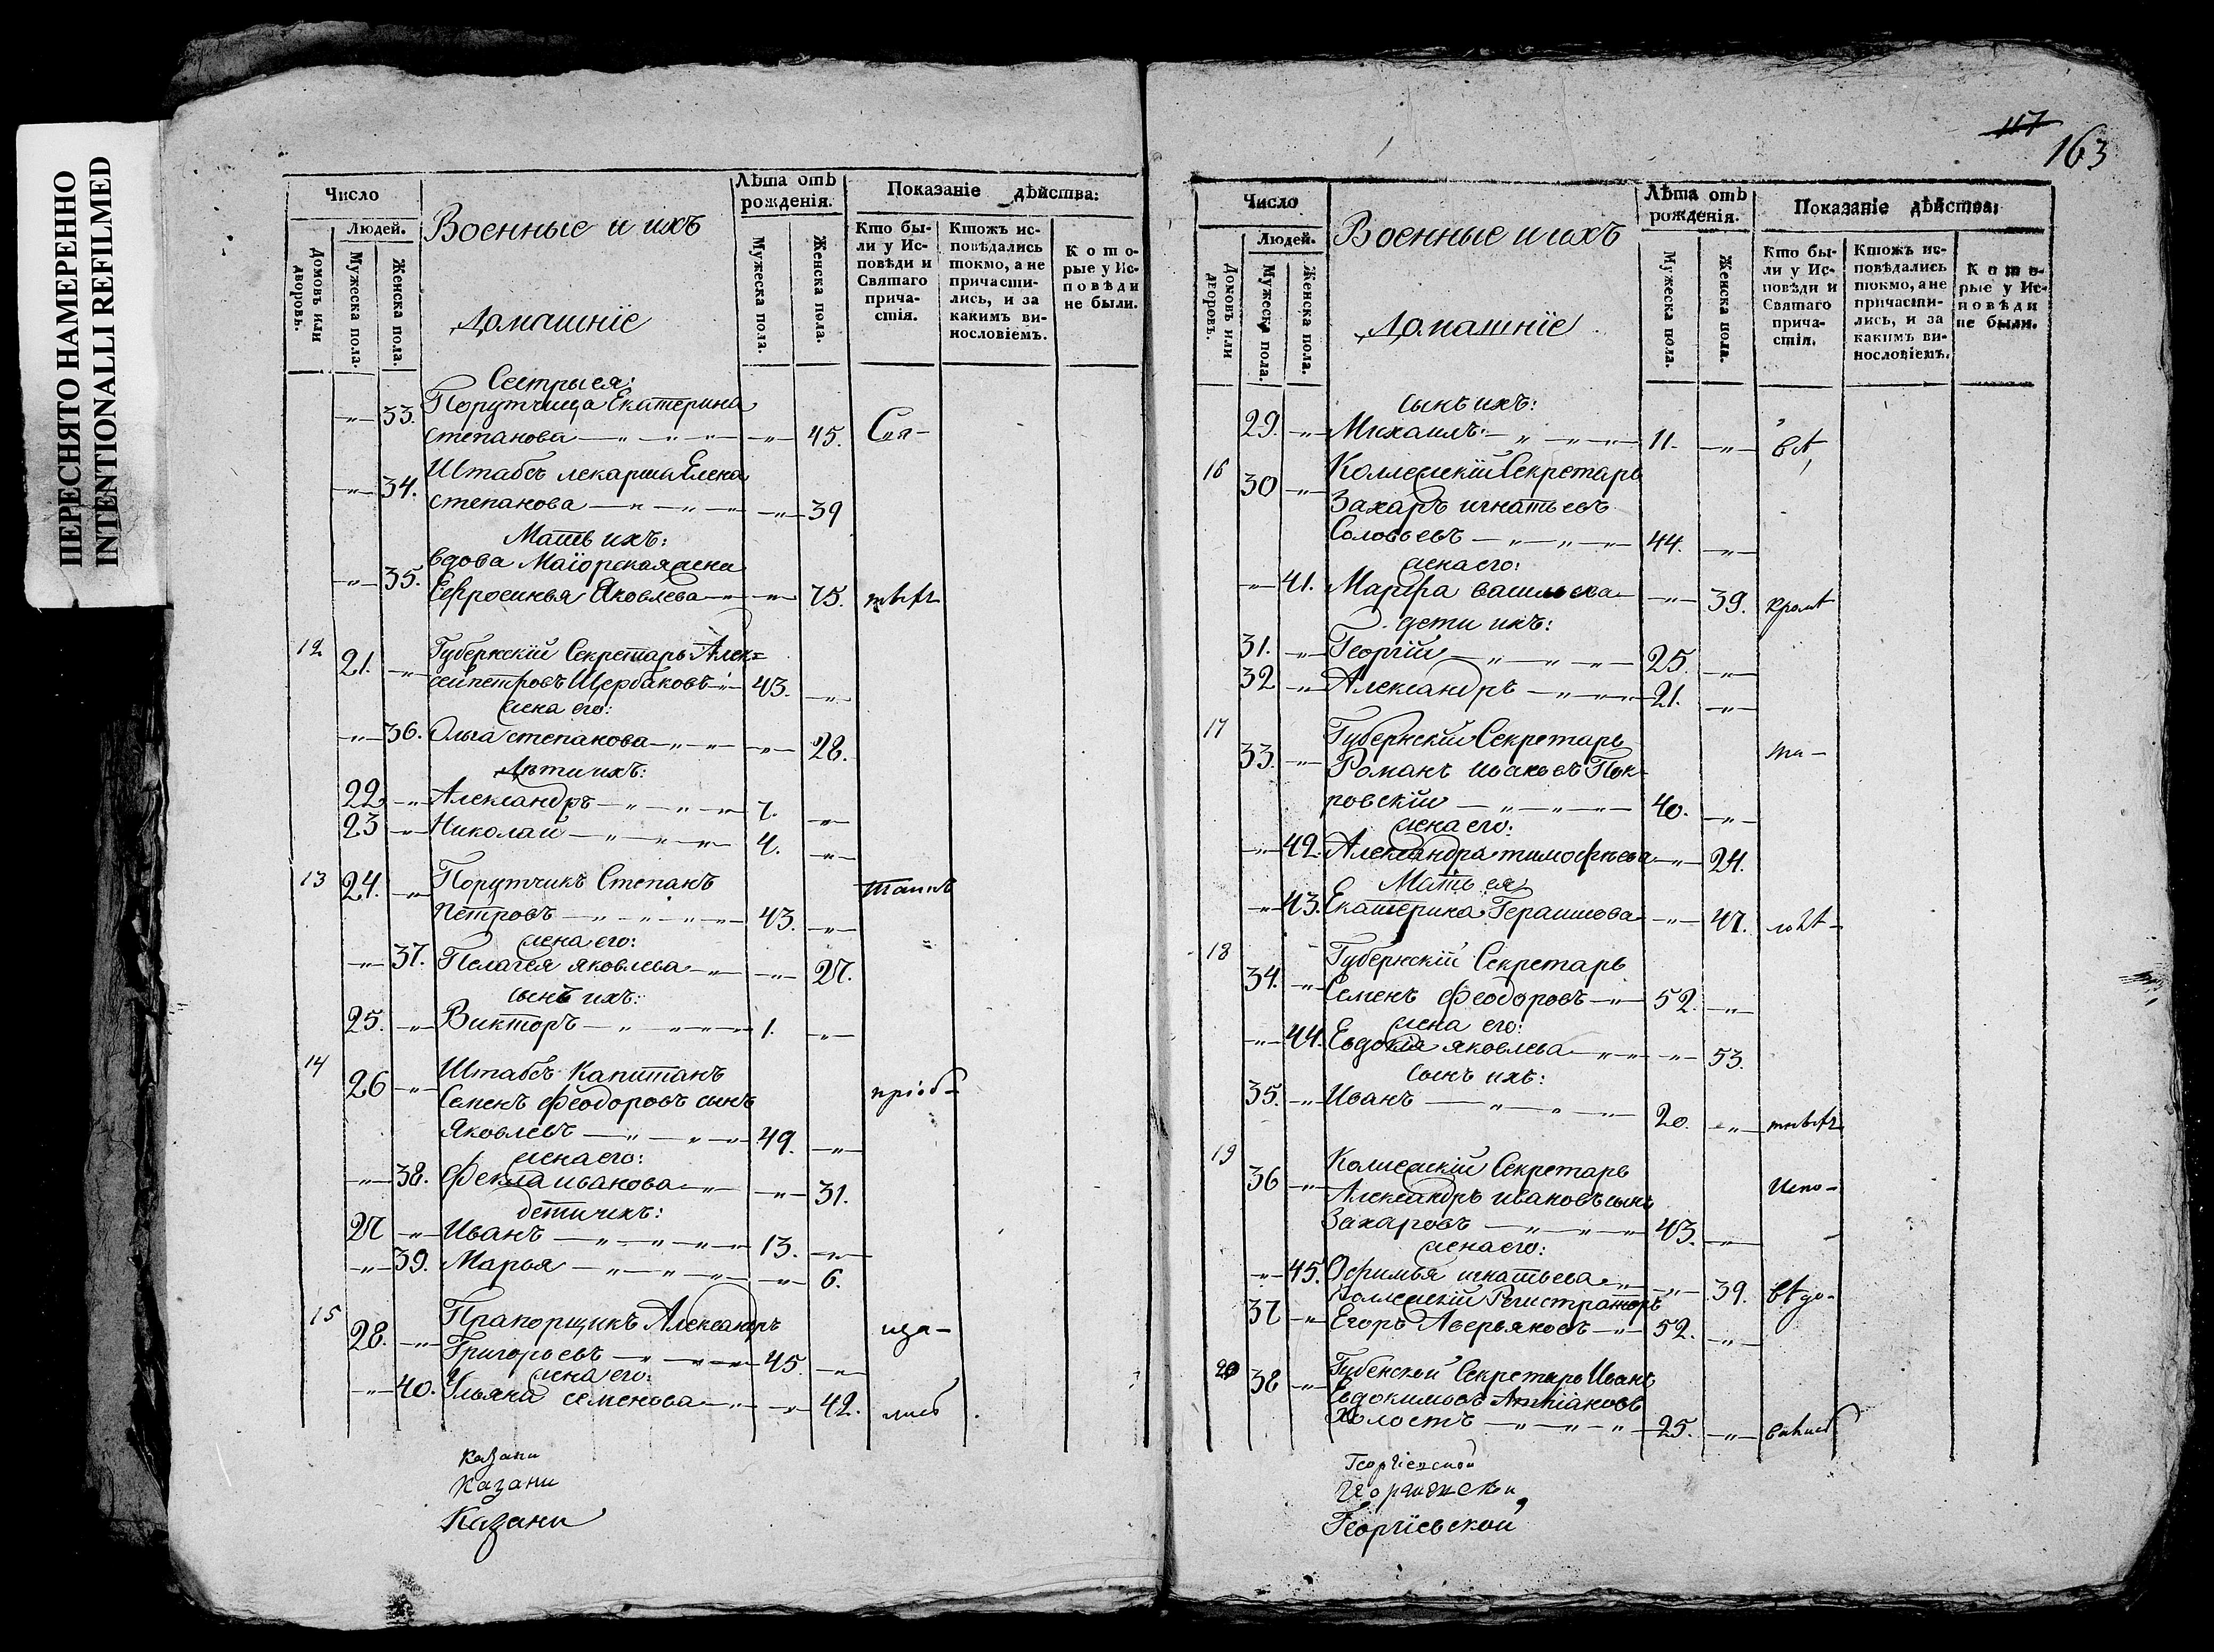 ПЕРЕСНЯТО НАМЕРЕННО
INTENTIONALLI REFILMED
Число
Людей.
Домовъ или дворовъ.
Мужеска пола.
Женска пола.
Военные и ихъ
Домашніе
Лѣта отъ рожденія.
Мужеска пола.
Женска пола.
Показаніе дѣйства:
Кто были у Исповѣди и Святаго причастія.
Ктожъ исповѣдались токмо, а не причастились, и за какимъ винословіемъ.
Которые у Исповѣди не были.
Сестры ея:
33. Порутчица Екатерина
степанова 45.
34. Штабсъ лекарша Елена
степанова 39
Мать ихъ:
35. вдова Маіорская жена
Ефросинья Яковлева 75.
12 21. Губернскій Секретарь Алек=
сей петровъ Щербаковъ 43.
жена его:
36. Ольга степанова 28.
Дѣти ихъ:
22. Александръ 7.
23 Николай 4.
13 24. Порутчикъ Степанъ
Петровъ 43.
жена его:
37. Пелагея яковлева 27.
сынъ ихъ:
25. Викторъ 1.
14 26 Штабсъ Капитанъ
Семенъ Феодоровъ сынъ пріоб-
Яковлевъ 49.
жена его:
38. Фекла иванова 31.
дети ихъ:
27 Иванъ 13.
39. Марья 6.
15 28. Прапорщикъ Александръ
Григорьевъ 45. ща-
жена его:
40. Ульяна семенова 42. лись
Казани
Казани
Казани
117
163
Число
Людей.
Домовъ или дворовъ.
Мужеска пола.
Женска пола.
Военные и ихъ
Домашніе
Лѣта отъ рожденія.
Мужеска пола.
Женска пола.
Показаніе дѣйства:
Кто были у Исповѣди и Святаго причастія.
Ктожъ исповѣдались токмо, а не причастились, и за какимъ винословіемъ.
Которые у Исповѣди не были.
сынъ ихъ:
29. Михаилъ 11.
16 30 Коллежскій Секретарь
Захаръ игнатьевъ
Соловьевъ 44.
жена его:
41. Марфа васильева 39.
дети ихъ:
31. Георгій 25.
32 Александръ 21.
17 33. Губернскій Секретарь
Романъ ивановъ Пок-
ровскій 40.
жена его:
42. Александра тимофѣева 24.
Мать ея
43. Екатерина Герасимова 47.
18 34. Губернскій Секретарь
Семенъ Феодоровъ 52.
жена его:
44. Евдокія яковлева 53.
сынъ ихъ:
35. Иванъ 20.
19 36 Коллежскій Секретарь
Александръ ивановъ сынъ Испо-
Захаровъ 43.
жена его:
45. Офимья игнатьева 39. вѣдо-
37 Коллежскій Регистраторъ
Егоръ Аверьяновъ 52.
20 38 Губенской Секретарь Иванъ
Евдокимовъ
Холостъ 25.
Георгіевской
Георгіевской